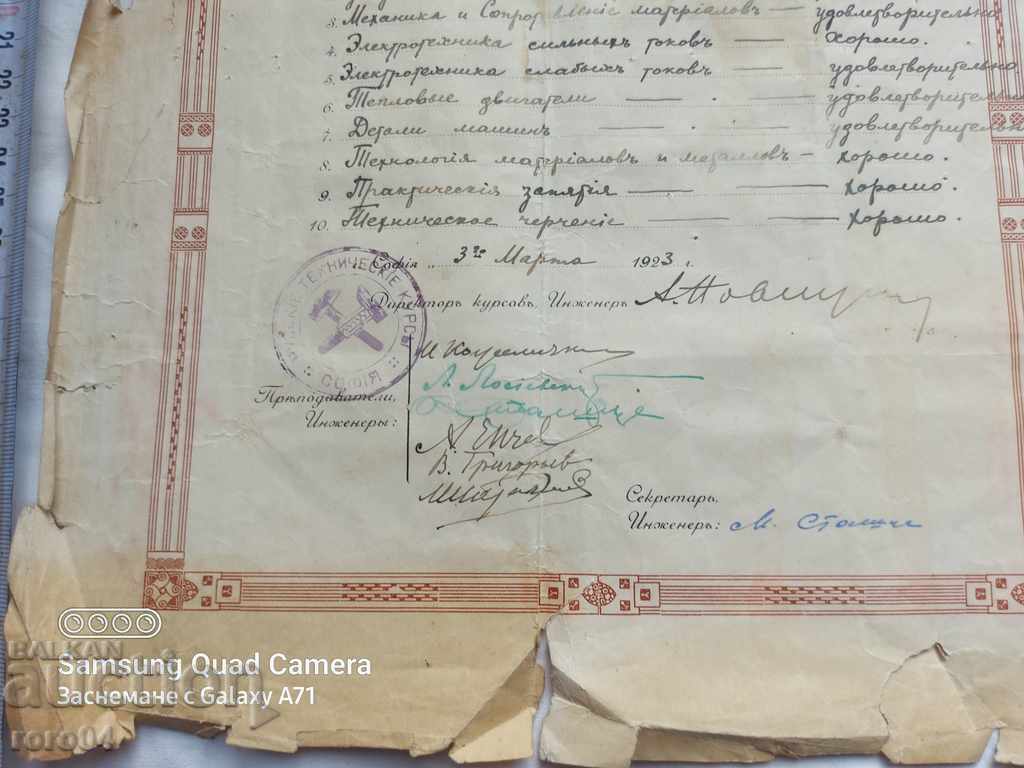 3. Механика и Сопротивленіе матеріаловъ — удовлетворительно
4. Электротехника сильныхъ токовъ — хорошо.
5. Электротехника слабыхъ токовъ — удовлетворительно
6. Тепловые двигатели — удовлетворительно
7. Детали машинъ — удовлетворительно
8. Технологія матеріаловъ и металловъ — хорошо.
9. Практическія занятія — хорошо.
10. Техническое черченіе — хорошо.
Софія „ 3го Марта 1923 г.
ТЕХНИЧЕСКІЕ КУРСЫ
СОФІЯ
Директоръ курсовъ, Инженеръ
Прѣподаватели,
Инженеры:
В. Григорьев
Секретарь,
Инженеръ: М. Столице
BALKAN
auction
roro04
Samsung Quad Camera
Заснемане с Galaxy A71
21
22
23
24
25